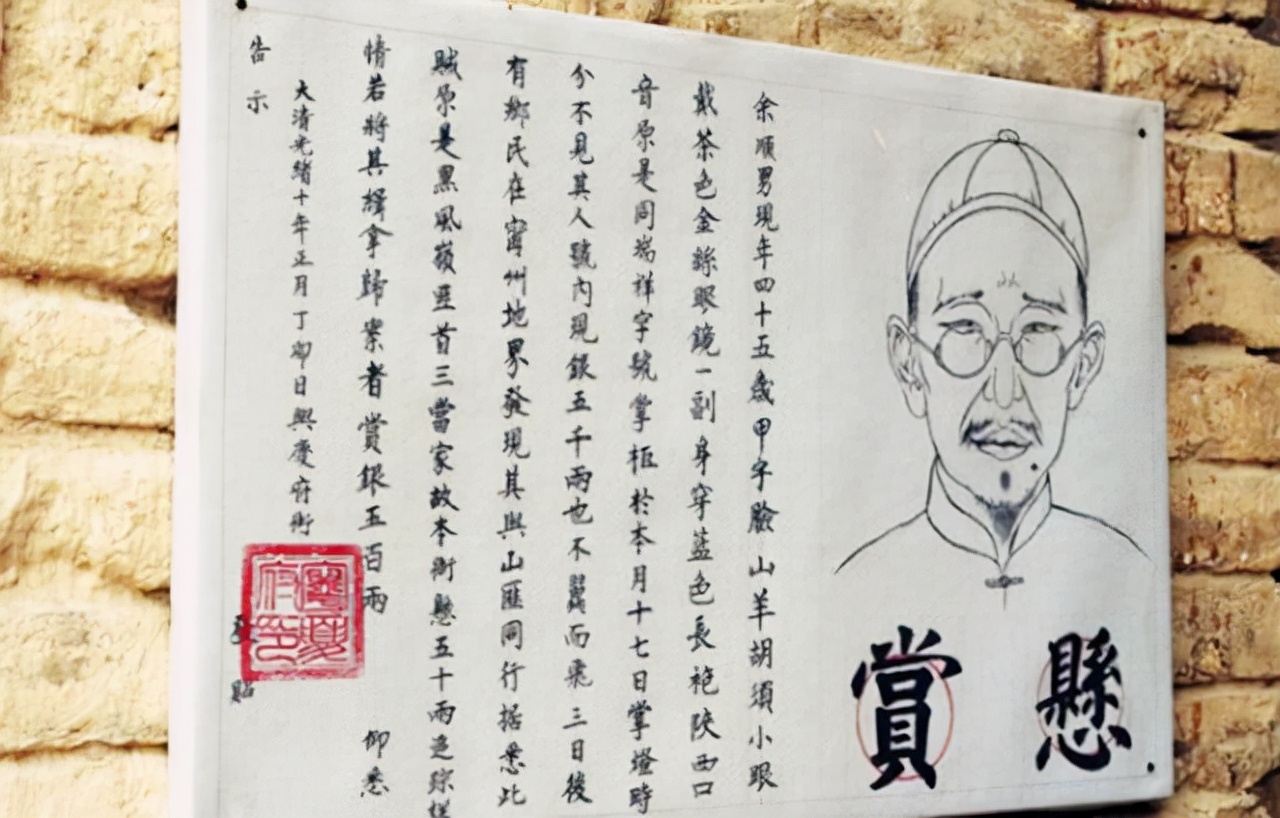 懸賞
余順男現年四十五歲甲字臉山羊胡須小眼
戴茶色金絲眼鏡一副身穿藍色長袍陝西口
音原是同瑞祥字號掌柜於本月十七日掌燈時
分不見其人號內現銀五千兩也不翼而飛三日後
有鄉民在甯州地界發現其與山匪同行据悉此
賊原是黑風嶺匪首三當家故本衙懸五十兩追踪
情若將其緝拿歸案者賞銀五百兩 仰悉
大清光緒十年正月丁卯日興慶府衙
告示 貼
寧夏府印